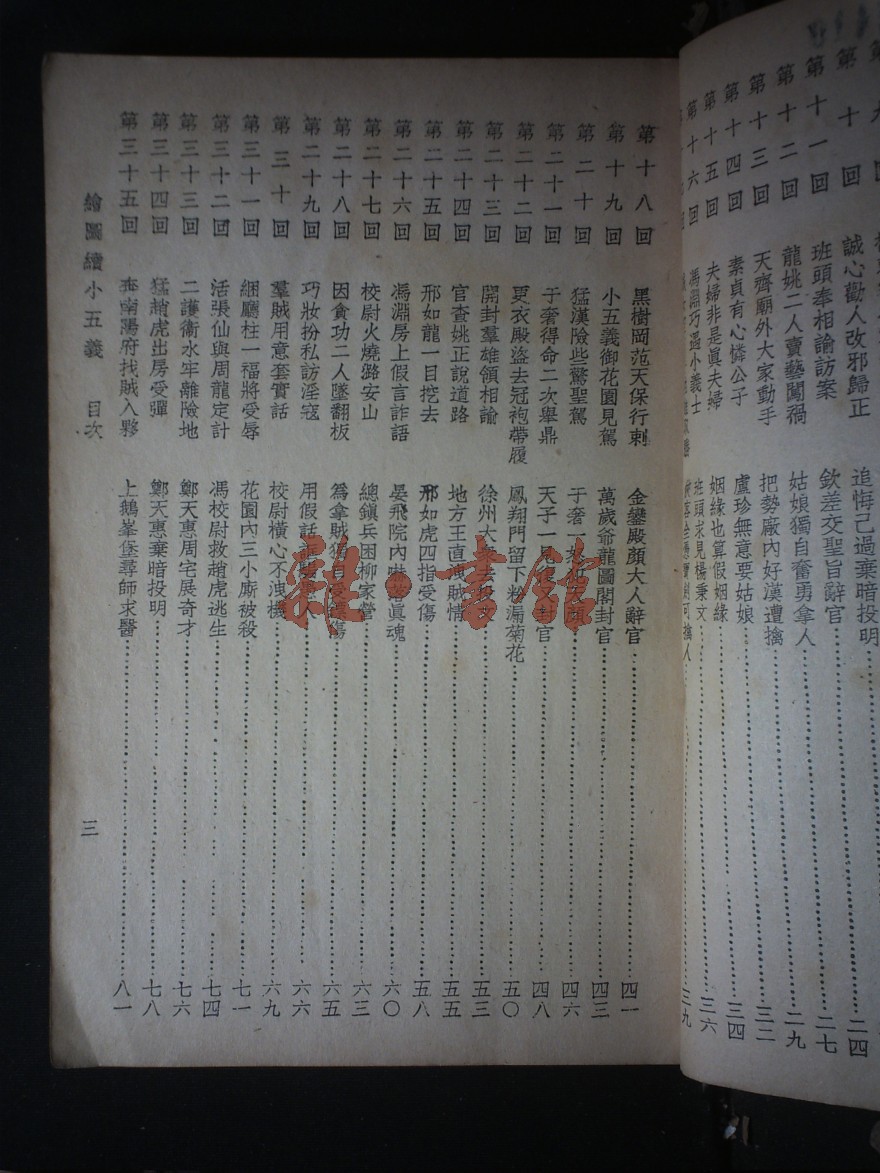 第十回 誠心勸人改邪歸正 追悔己過棄暗投明 二四
第十一回 班頭奉相諭訪案 欽差交聖旨辭官 二七
第十二回 龍姚二人賣藝闖禍 姑娘獨自奮勇拿人 二九
第十三回 天齊廟外大家動手 把勢廠內好漢遭擒 三二
第十四回 素貞有心憐公子 盧珍無意要姑娘 三四
第十五回 夫婦非是眞夫婦 姻緣也算假姻緣 三六
第十六回 馮淵巧遇小義士 班頭求見楊秉文
三九
第十八回 黑樹岡范天保行刺 金鑾殿顏大人辭官 四一
第十九回 小五義御花園見駕 萬歲爺龍圖閣封官 四三
第二十回 猛漢險些驚聖駕 于奢一 四六
第二十一回 于奢得命二次舉鼎 天子一見 封官 四八
第二十二回 更衣殿盜去冠袍帶履 鳳翔門留下粉漏菊花 五〇
第二十三回 開封羣雄領相諭 徐州大 五三
第二十四回 官查姚正說道路 地方王直洩賊情 五五
第二十五回 邢如龍一目挖去 邢如虎四指受傷 五八
第二十六回 馮淵房上假言詐語 晏飛院內嚇 眞魂 六〇
第二十七回 校尉火燒潞安山 總鎭兵困柳家營 六三
第二十八回 因貪功二人墜翻板 爲拿賊獨自受 傷 六五
第二十九回 巧妝扮私訪淫寇 用假話 六六
第三十回 羣賊用意套實話 校尉橫心不洩機 六九
第三十一回 綑廳柱一福將受辱 花園內三小廝被殺 七一
第三十二回 活張仙與周龍定計 馮校尉救趙虎逃生 七四
第三十三回 二護衞水牢離險地 鄭天惠周宅展奇才 七六
第三十四回 猛趙虎出房受彈 鄭天惠棄暗投明 七八
第三十五回 南陽府找賊入夥 上鵝峯堡尋師求醫 八一
繪圖續小五義 目次 三
雜·書館